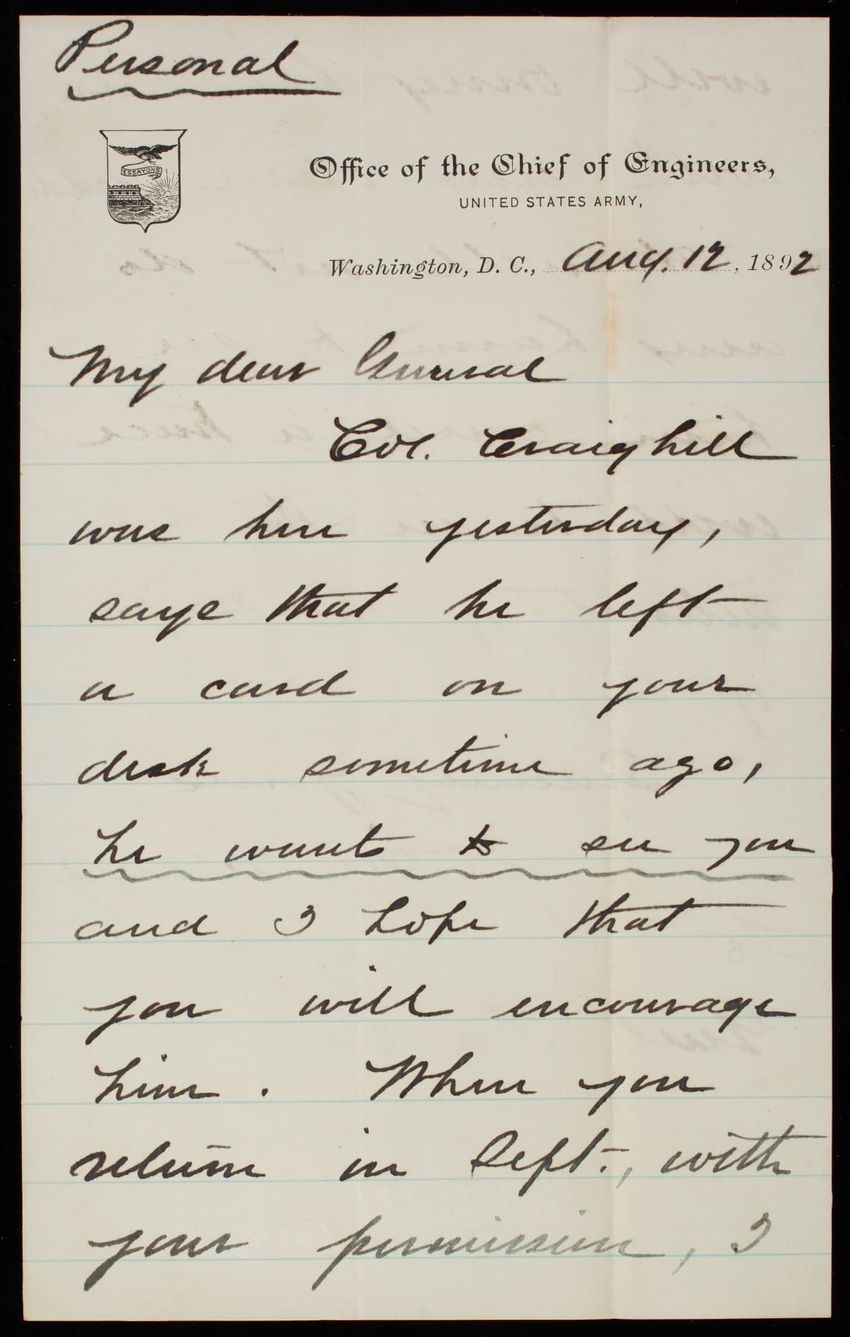 Personal
ESSAYONS
Office of the Chief of Engineers,
UNITED STATES ARMY,
Washington, D. C., Aug. 12, 1892
My dear General
Col. Craighill
was here yesterday,
says that he left
a card on your
desk sometime ago,
he wants to see you
and I hope that
you will encourage
him. When you
return in Sept., with
your permission, I